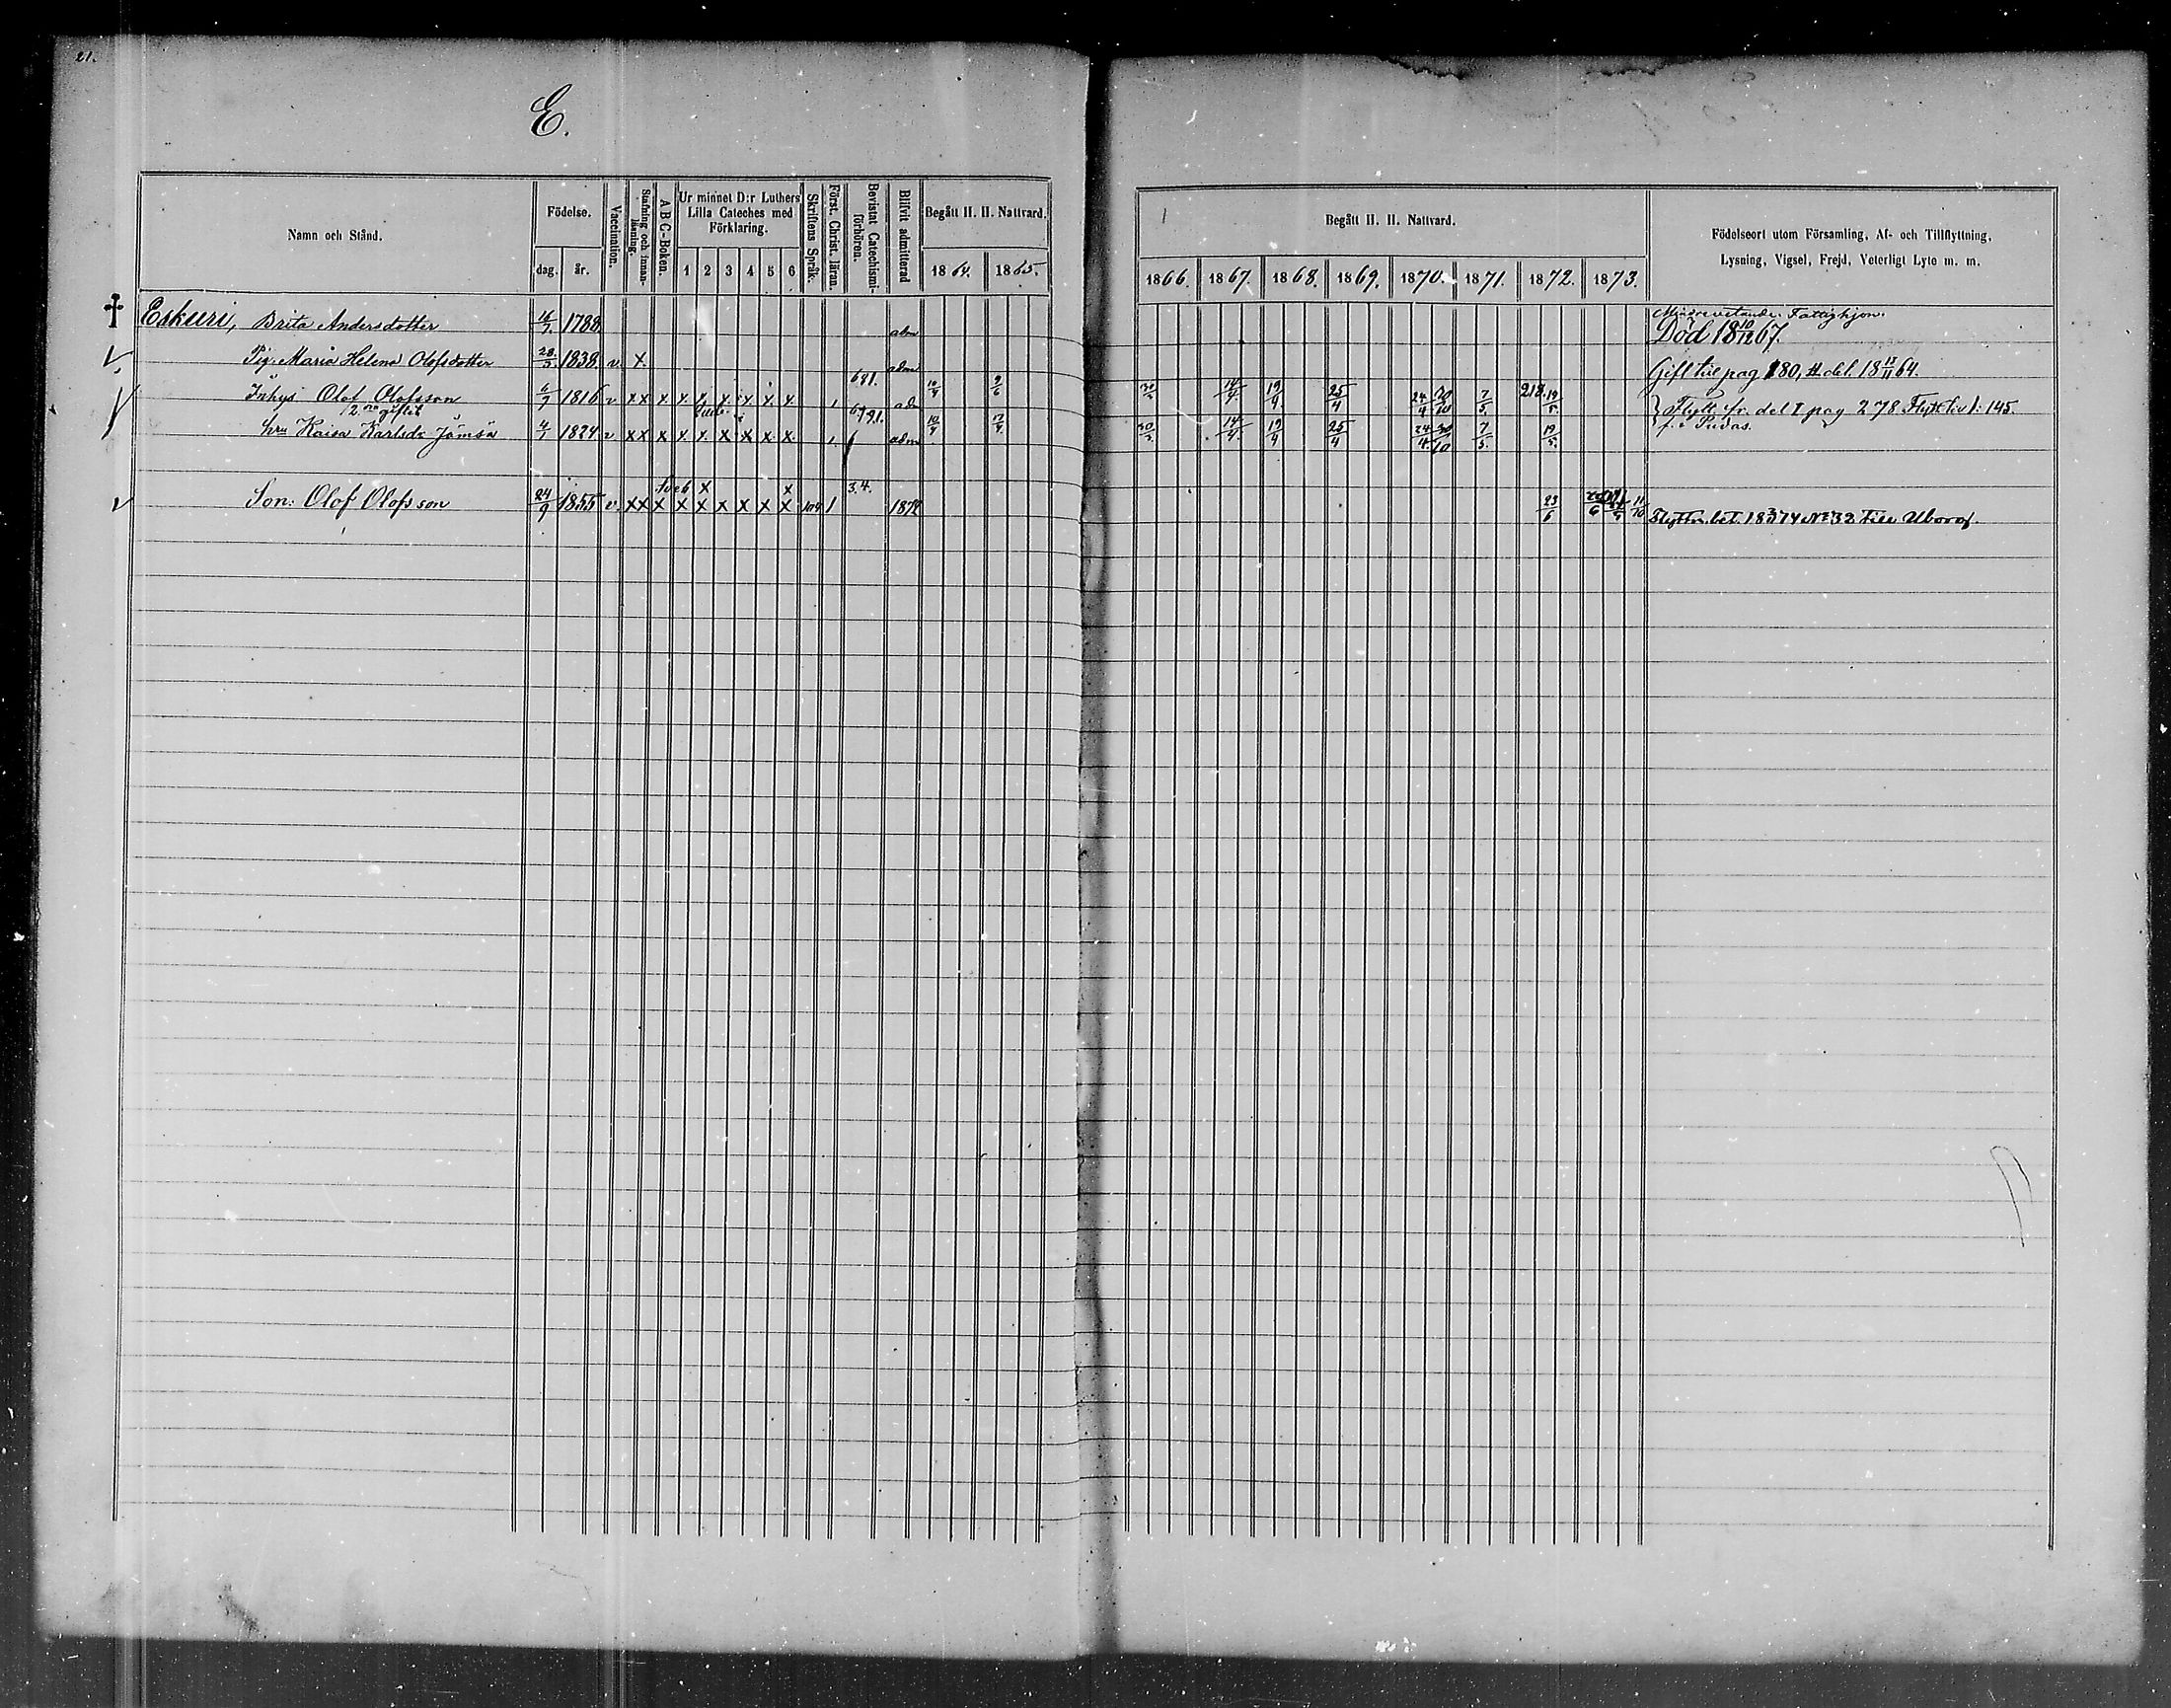 21.
E.
Namn och Stånd.
Födelse.
dag. år.
Vaccination.
Stafning och innanläsning.
A B C-Boken.
Ur minnet D:r Luthers Lilla Cateches med Förklaring.
1 2 3 4 5 6
Skriftens Språk.
Först. Christ. läran.
Bevistat Catechismiförhören.
Blifvit admitterad
Begått H. H. Nattvard.
1864. 1865.
Begått H. H. Nattvard.
1866. 1867. 1868. 1869. 1870. 1871. 1872. 1873.
Födelseort utom Församling, Af- och Tillflyttning,
Lysning, Vigsel, Frejd, Veterligt Lyte m. m.
† Eskuri, Brita Andersdotter 16/7. 1788 adm Fattighjon.
Död 18 10/12 67.
v. Pig. Maria Helena Olofsdotter 28/5. 1838. v. x. adm Gift til pag 180, II del. 18 13/11 64.
Inhys Olof Olofsson 6/7 1816 v x x x x x x x x x 1 681. adm 10/4 9/6 30/3 14/4 19/4 25/4 24/4 30/10 7/5. 218. 19/5. Flytt fr. del I pag 278. Flytt liv I: 145.
2. ra giftet
hru Kaisa Karlsdr Jämsä 4/1 1824 v x x x x x x x x x 1 6791. adm 10/4 17/4. 30/3. 14/4. 19/4 25/4 24/4. 30/10 7/5. 19/5. Pudas.
v Son: Olof Olofsson 24/9 1855 v. x x x x x x x x x 1 3.4. 1872 23/6 11/10 Flyttn. bet. 18 3/11 74 No 32 till Uborg.